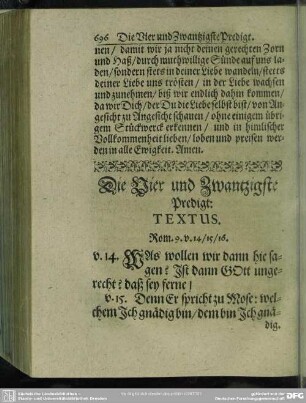 696 Die Vier und Zwantzigste Predigt.
nen / damit wir ja nicht deinen gerechten Zorn
und Haß / durch muthwillige Sünde auf uns la-
den / sondern stets in deiner Liebe wandeln / stets
deiner Liebe uns trösten / in der Liebe wachsen
und zunehmen / biß wir endlich dahin kommen /
da wir Dich / der Du die Liebe selbst bist / von An-
gesicht zu Angesicht schauen / ohne einigem übri-
gem Stückwerck erkennen / und in himlischer
Vollkommenheit lieben / loben und preisen wer-
den in alle Ewigkeit. Amen.
Die Vier und Zwantzigste
Predigt:
TEXTUS.
Rom. 9. v. 14/15/16.
v. 14. WAs wollen wir dann hie sa-
gen? Ist dann GOtt unge-
recht? daß sey ferne!
v. 15. Denn Er spricht zu Mose: wel-
chem Ich gnädig bin / dem bin Ich gnä-
dig.